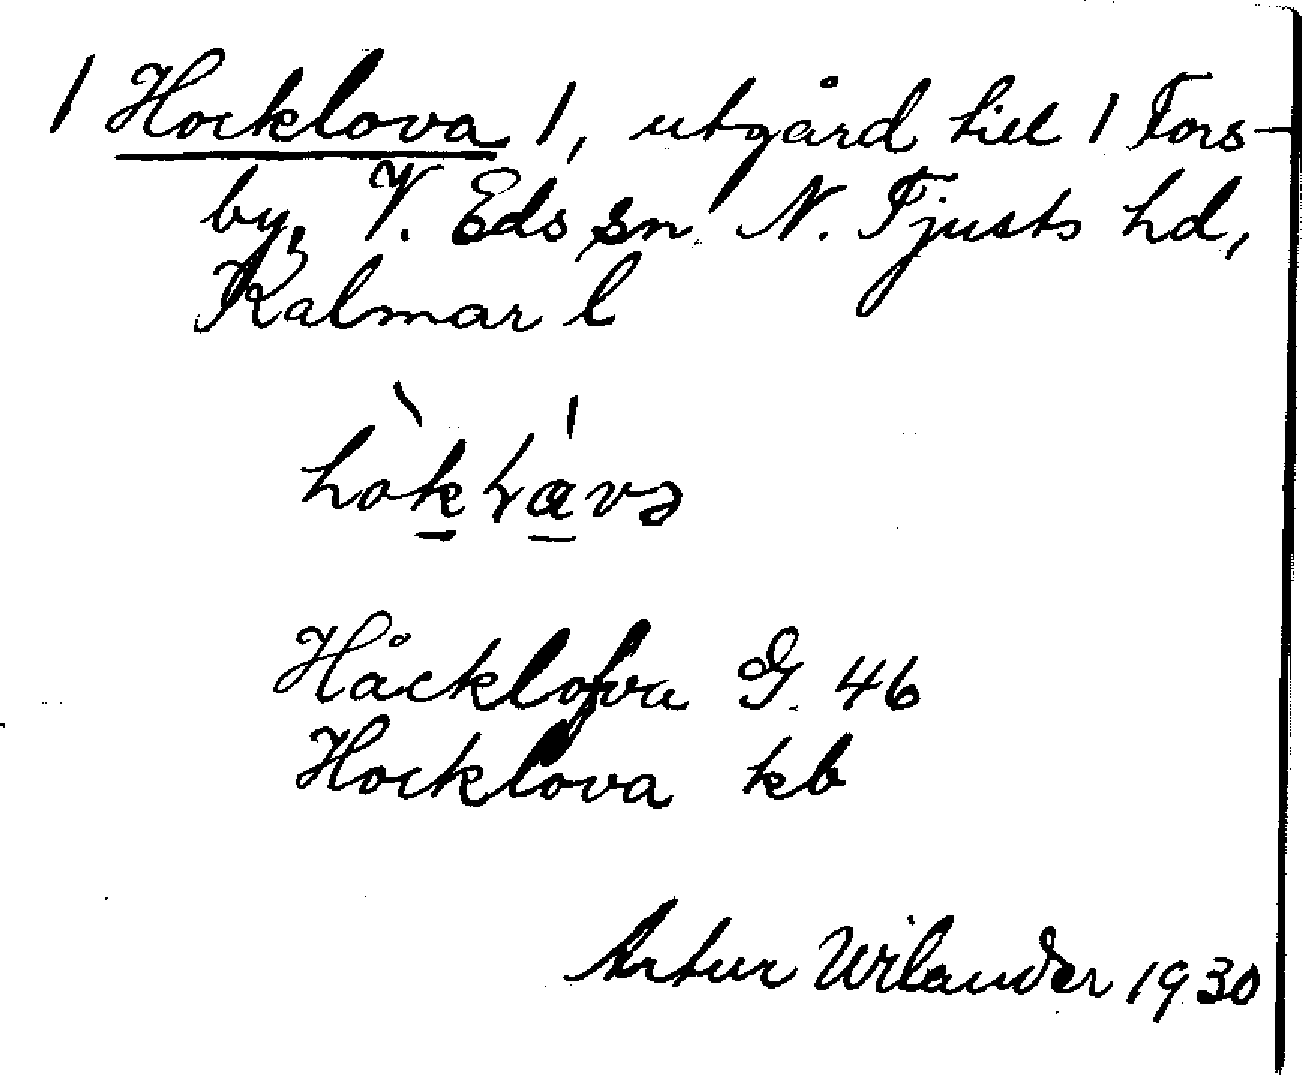 1 Hocklova 1, utgård till 1 Fors-
by, V. Eds sn N. Tjusts hd,
Kalmar l
Håcklofva G. 46
Hocklova kb
Artur Wilander 1930